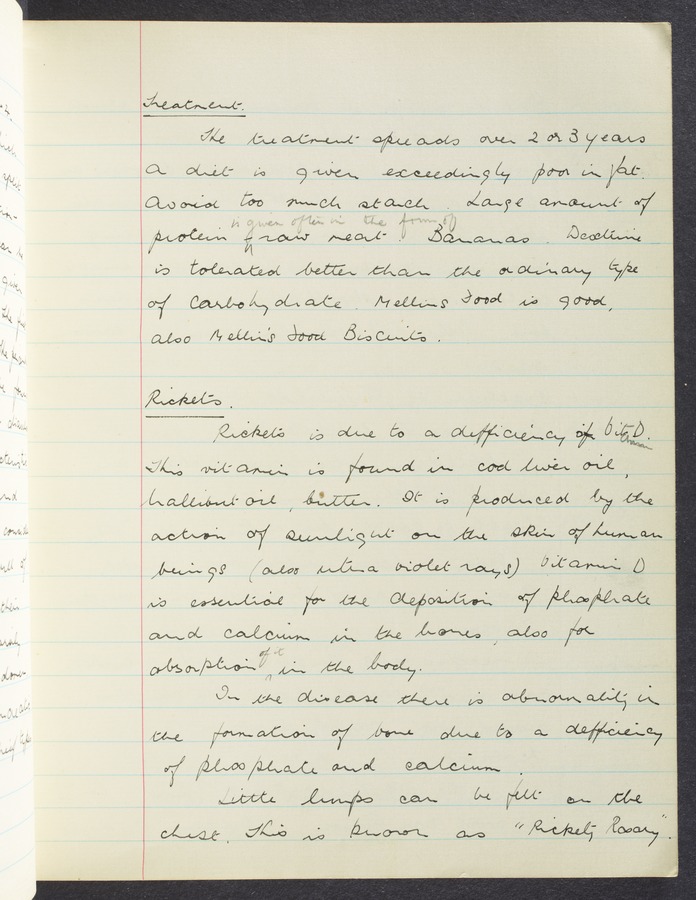 Treatment.
The treatment spreads over 2 or 3 years
a diet is given exceedingly poor in fat.
avoid too much starch. Large amount of
is given often in the form of
protein raw meat. Bananas. Dextrine
is tolerated better than the ordinary type
of carbohydrate. Mellins Food is good,
also Mellin's Food Biscuits.
Rickets.
Rickets is due to a defficiency of Vit D.
This vitamin is found in cod liver oil,
hallibut oil, butter. It is produced by the
action of sunlight on the skin of human
beings (also ultra violet rays) Vitamin D
is essential for the deposition of phosphate
and calcium in the bones, also for
absorption of it in the body.
In the disease there is abnormality in
the formation of bone due to a defficiency
of phosphate and calcium.
Little lumps can be felt on the
chest. This is known as "Rickety Rosary".